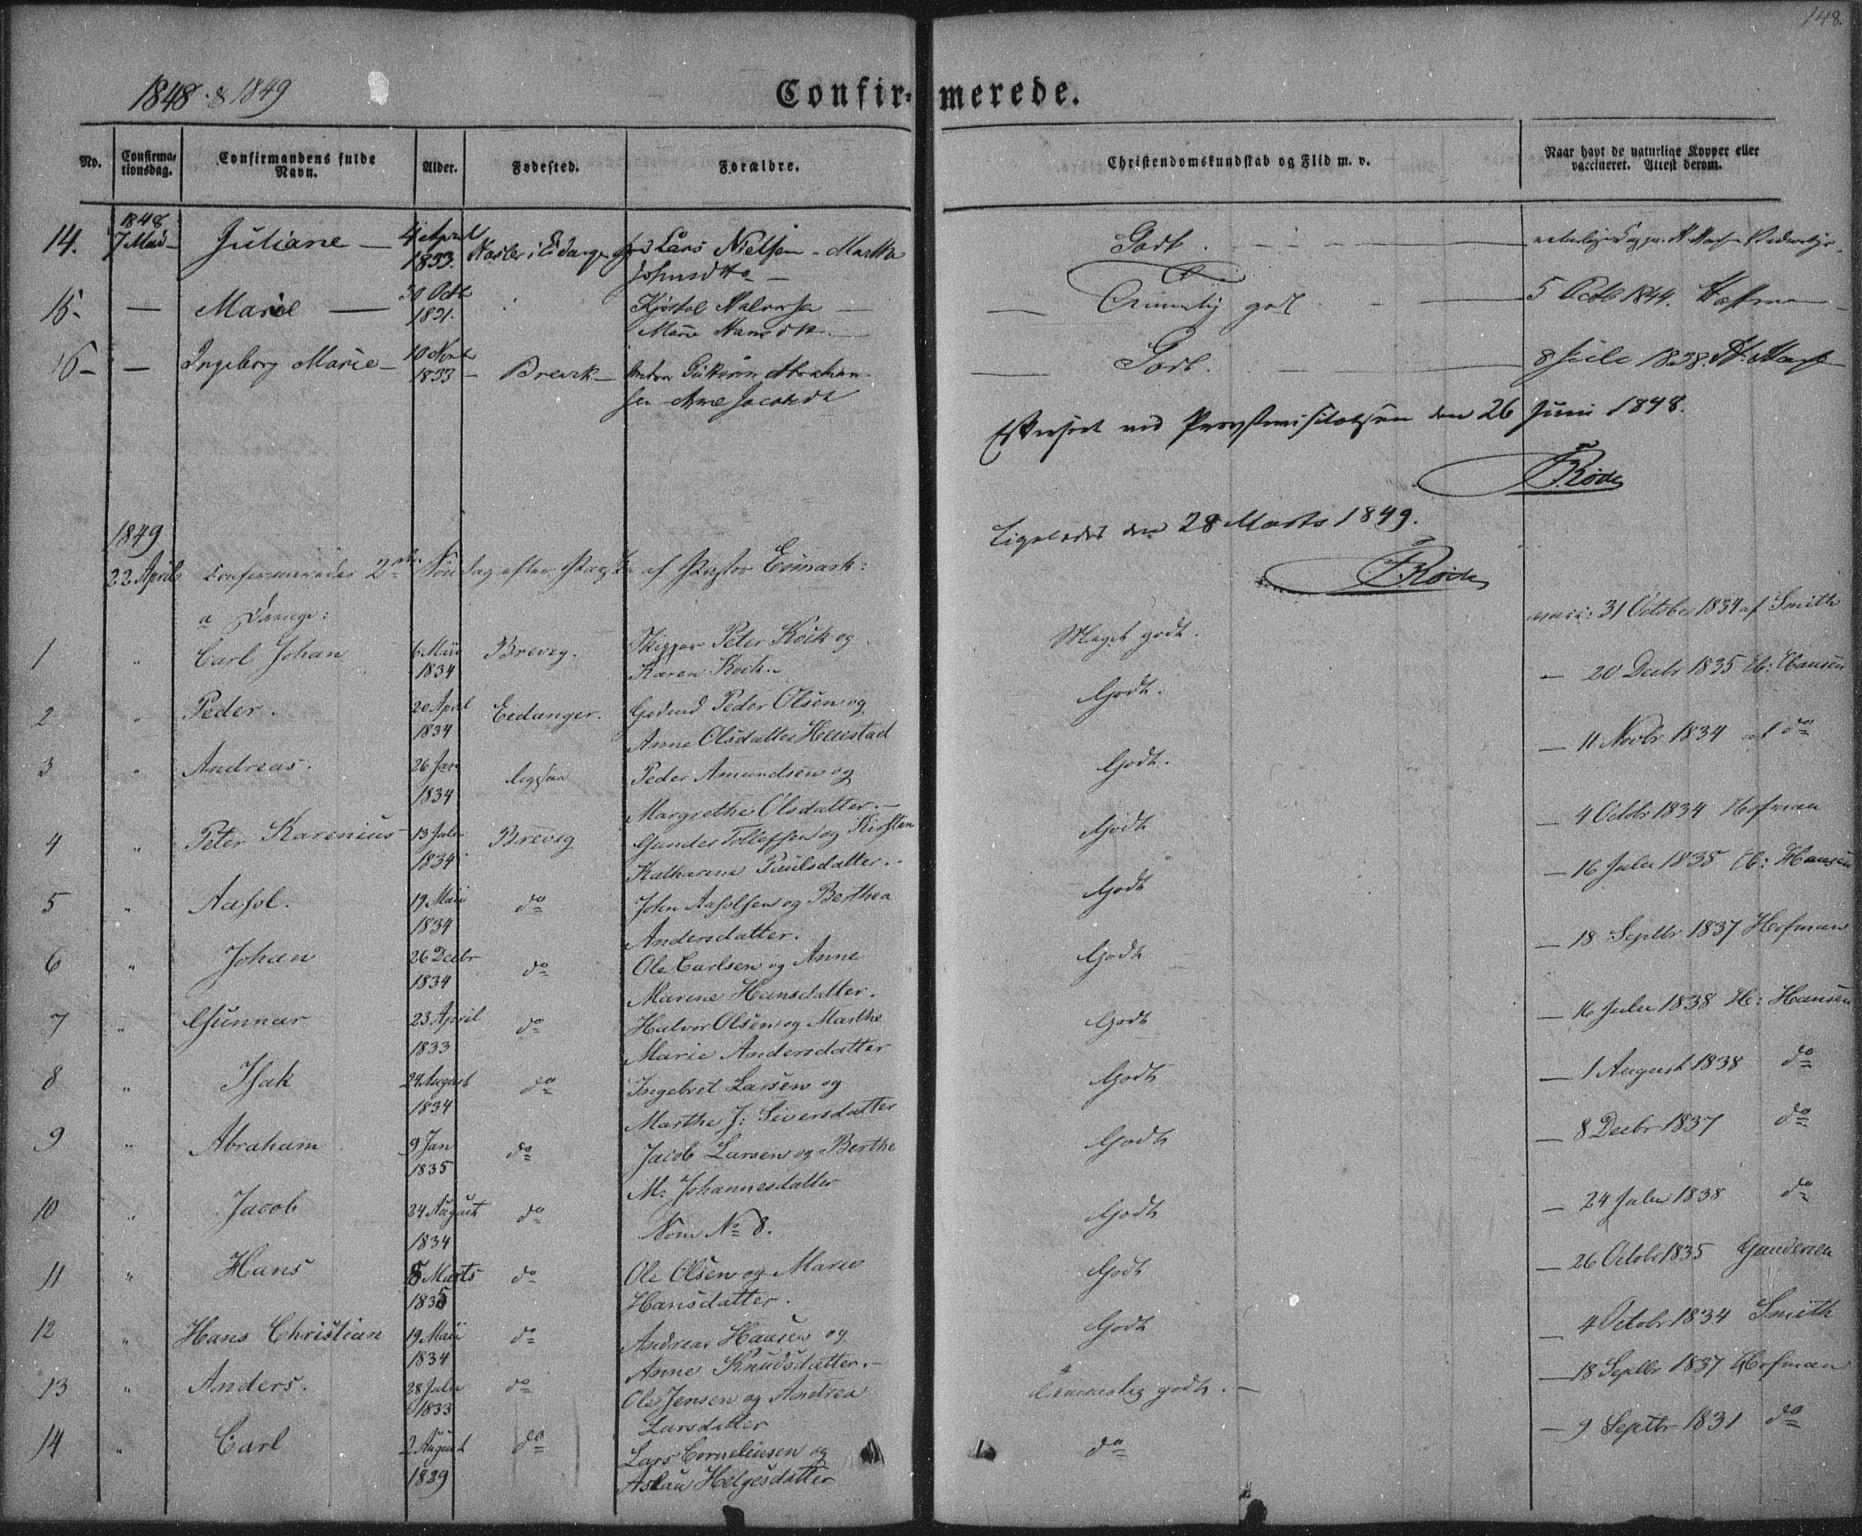 148.
1848 & 1849
Confirmerede.
No. Confirmationsdag. Confirmandens fulde Navn. Alder. Fødested. Forældre. Christendomskundskab og Flid m. v. Naar havt de naturlige Kopper eller vaccineret. Attest derom.
14. 1848 7 Mai Juliane 4 April 1833. i Eidanger Lars Nielsen - Martha Johnsdtr Godt.
15 — Marie 30 Octb 1821. Halvorsen Marie Hansdtr godt 5 Octb 1844. Hofman
16 — Ingeborg Marie 10 Novb 1833 Brevik Abrahamsen Jacobsdt Godt. 8 Juli 1838.
Efterseet ved Provstevisitatsen den 26 Juni 1848.
FRode
Ligeledes den 28 Marts 1849.
FRode
1849
22 April Confirmerede 2den Søndag efter Paaske af Pastor Esmark:
a Drenge:
1 " Carl Johan 6 Mai 1834 Brevig. Skipper Peter Kock og Karen Kock. Meget godt. vacc: 31 October 1834 af Smith
2 " Peder. 20 April 1834 Eedanger. Gdmd Peder Olsen og Anne Olsdatter Heistad Godt. — 20 Decbr 1835 H: Hansen
3 " Andreas. 26 Jan 1834 ligesaa Peder Amundsen og Margrethe Olsdatter. Godt. — 11 Novbr 1834 af do
4 " Peter Karenius 13 Julii 1834 Brevig Gunder Tollefsen og Kirsten Katharina Poulsdatter. Godt — 4 Octobr 1834 Hofman
5 " Aasol. 19 Mai 1834 do John Aasolsen og Berthea Andersdatter. Godt — 16 Julii 1835 H: Hansen
6 " Johan 26 Decbr 1834 do Ole Carlsen og Anne Marine Hansdatter. Godt — 18 Septbr 1837 Hofman
7 " Gunnar 23 April 1833 do Halvor Olsen og Marthe Marie Andersdatter Godt — 16 Julii 1838 H: Hansen
8 " Isak 24 August 1834 do Ingebret Larsen og Marthe J: Siversdatter Godt — 1 August 1838 do
9 " Abraham 9 Jan 1835 do Jacob Larsen og Berthe M: Johannesdatter Godt — 8 Decbr 1837 do
10 " Jacob 24 August 1834 do Som No 8. Godt — 24 Julii 1838 do
11 " Hans 5 Marts 1835 do Ole Olsen og Maren Hansdatter. Godt — 26 Octobr 1835 Gundersen
12 " Hans Christian 19 Maii 1834 do Andreas Hansen og Anne Knudsdatter. Godt — 4 Octobr 1834 Smith
13 " Anders. 28 Julii 1833 do Ole Jensen og Andrea Larsdatter Temmelig godt. — 18 Septbr 1837 Hofman
14 " Carl 2 August 1829 do Lars Corneliussen og Aslau Helgesdatter do — 9 Septbr 1831 do